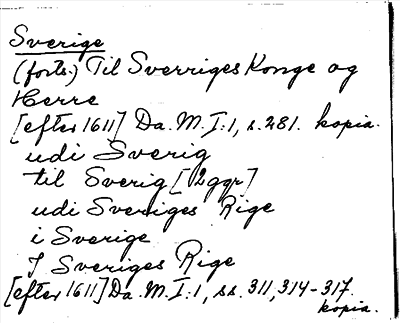 Sverige
(forts.) Til Sverriges Konge og
Herre
[efter 1611] Da. M. I:1, s. 281. kopia.
udi Sverig
til Sverig [2 ggr]
udi Sveriges Rige
i Sverige
J Sveriges Rige
[efter 1611] Da. M. I:1, ss. 311, 314-317.
kopia.